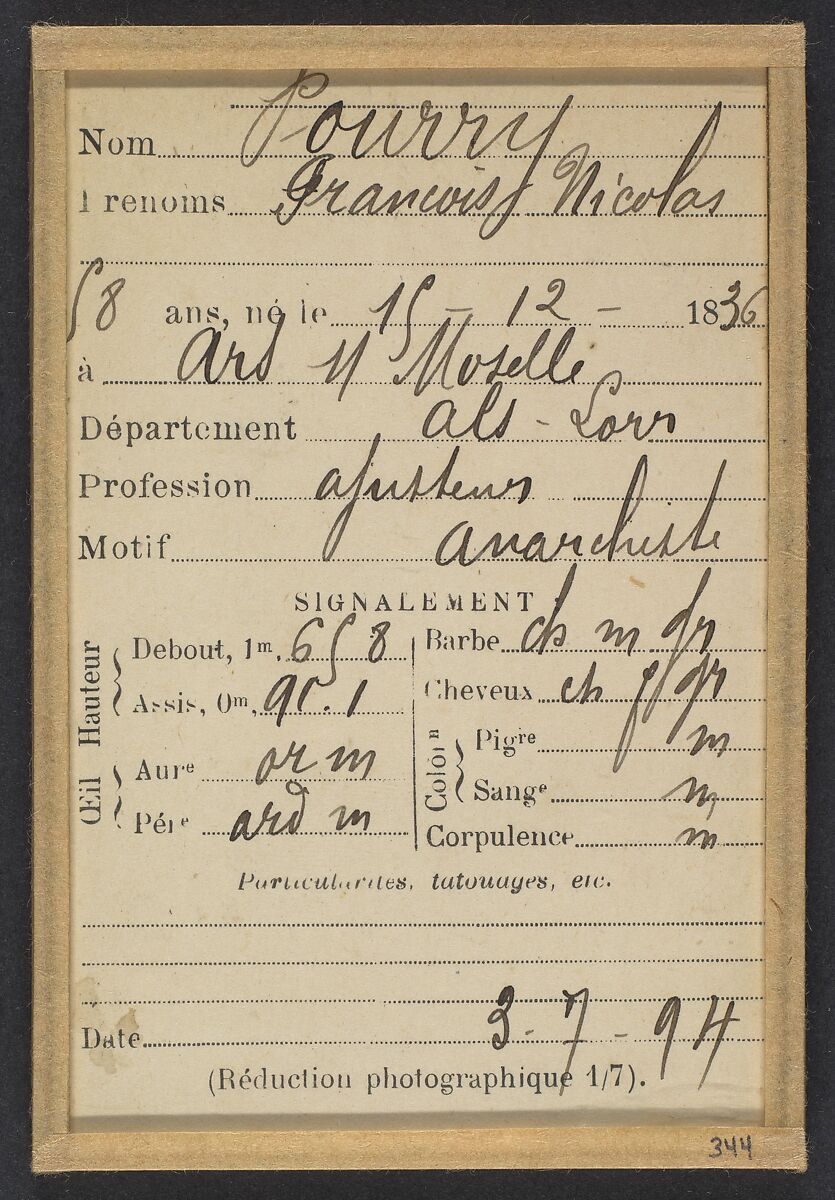 Nom Pourry
Prenoms François Nicolas
58 ans, né le 15 - 12 - 1836
à Ars s/ Moselle
Département Als - Lorr
Profession ajusteur
Motif anarchiste
SIGNALEMENT
Hauteur
Debout, 1m. 658
Assis, 0m, 90.1
Œil
Aure or m
Pére ard m
Barbe ch m gr
Cheveux ch f gr
Colon
Pigre m
Sange m
Corpulence m
Particularites, tatouages, etc.
Date 3 - 7 - 94
(Réduction photographique 1/7).
344